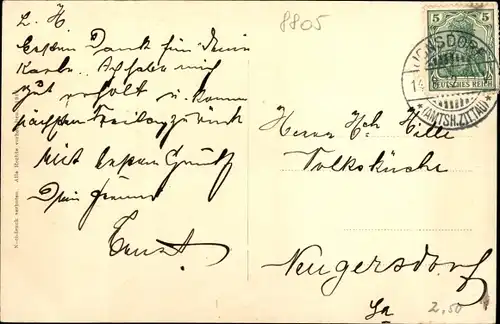 L. H
8805
Besten Dank für Deine
Karte. Ich habe mich
gut erholt u. komme
nächsten Freitag zurück
Mit besten Gruß
Dein Freund
Ernst
5 5
DEUTSCHES REICH
JONSDORF
14.
*(AMTSH. ZITTAU)*
Herrn Hch Hille
Volksküche
Neugersdorf
Sa
2,50
Nachdruck verboten. Alle Rechte vorbehalten.